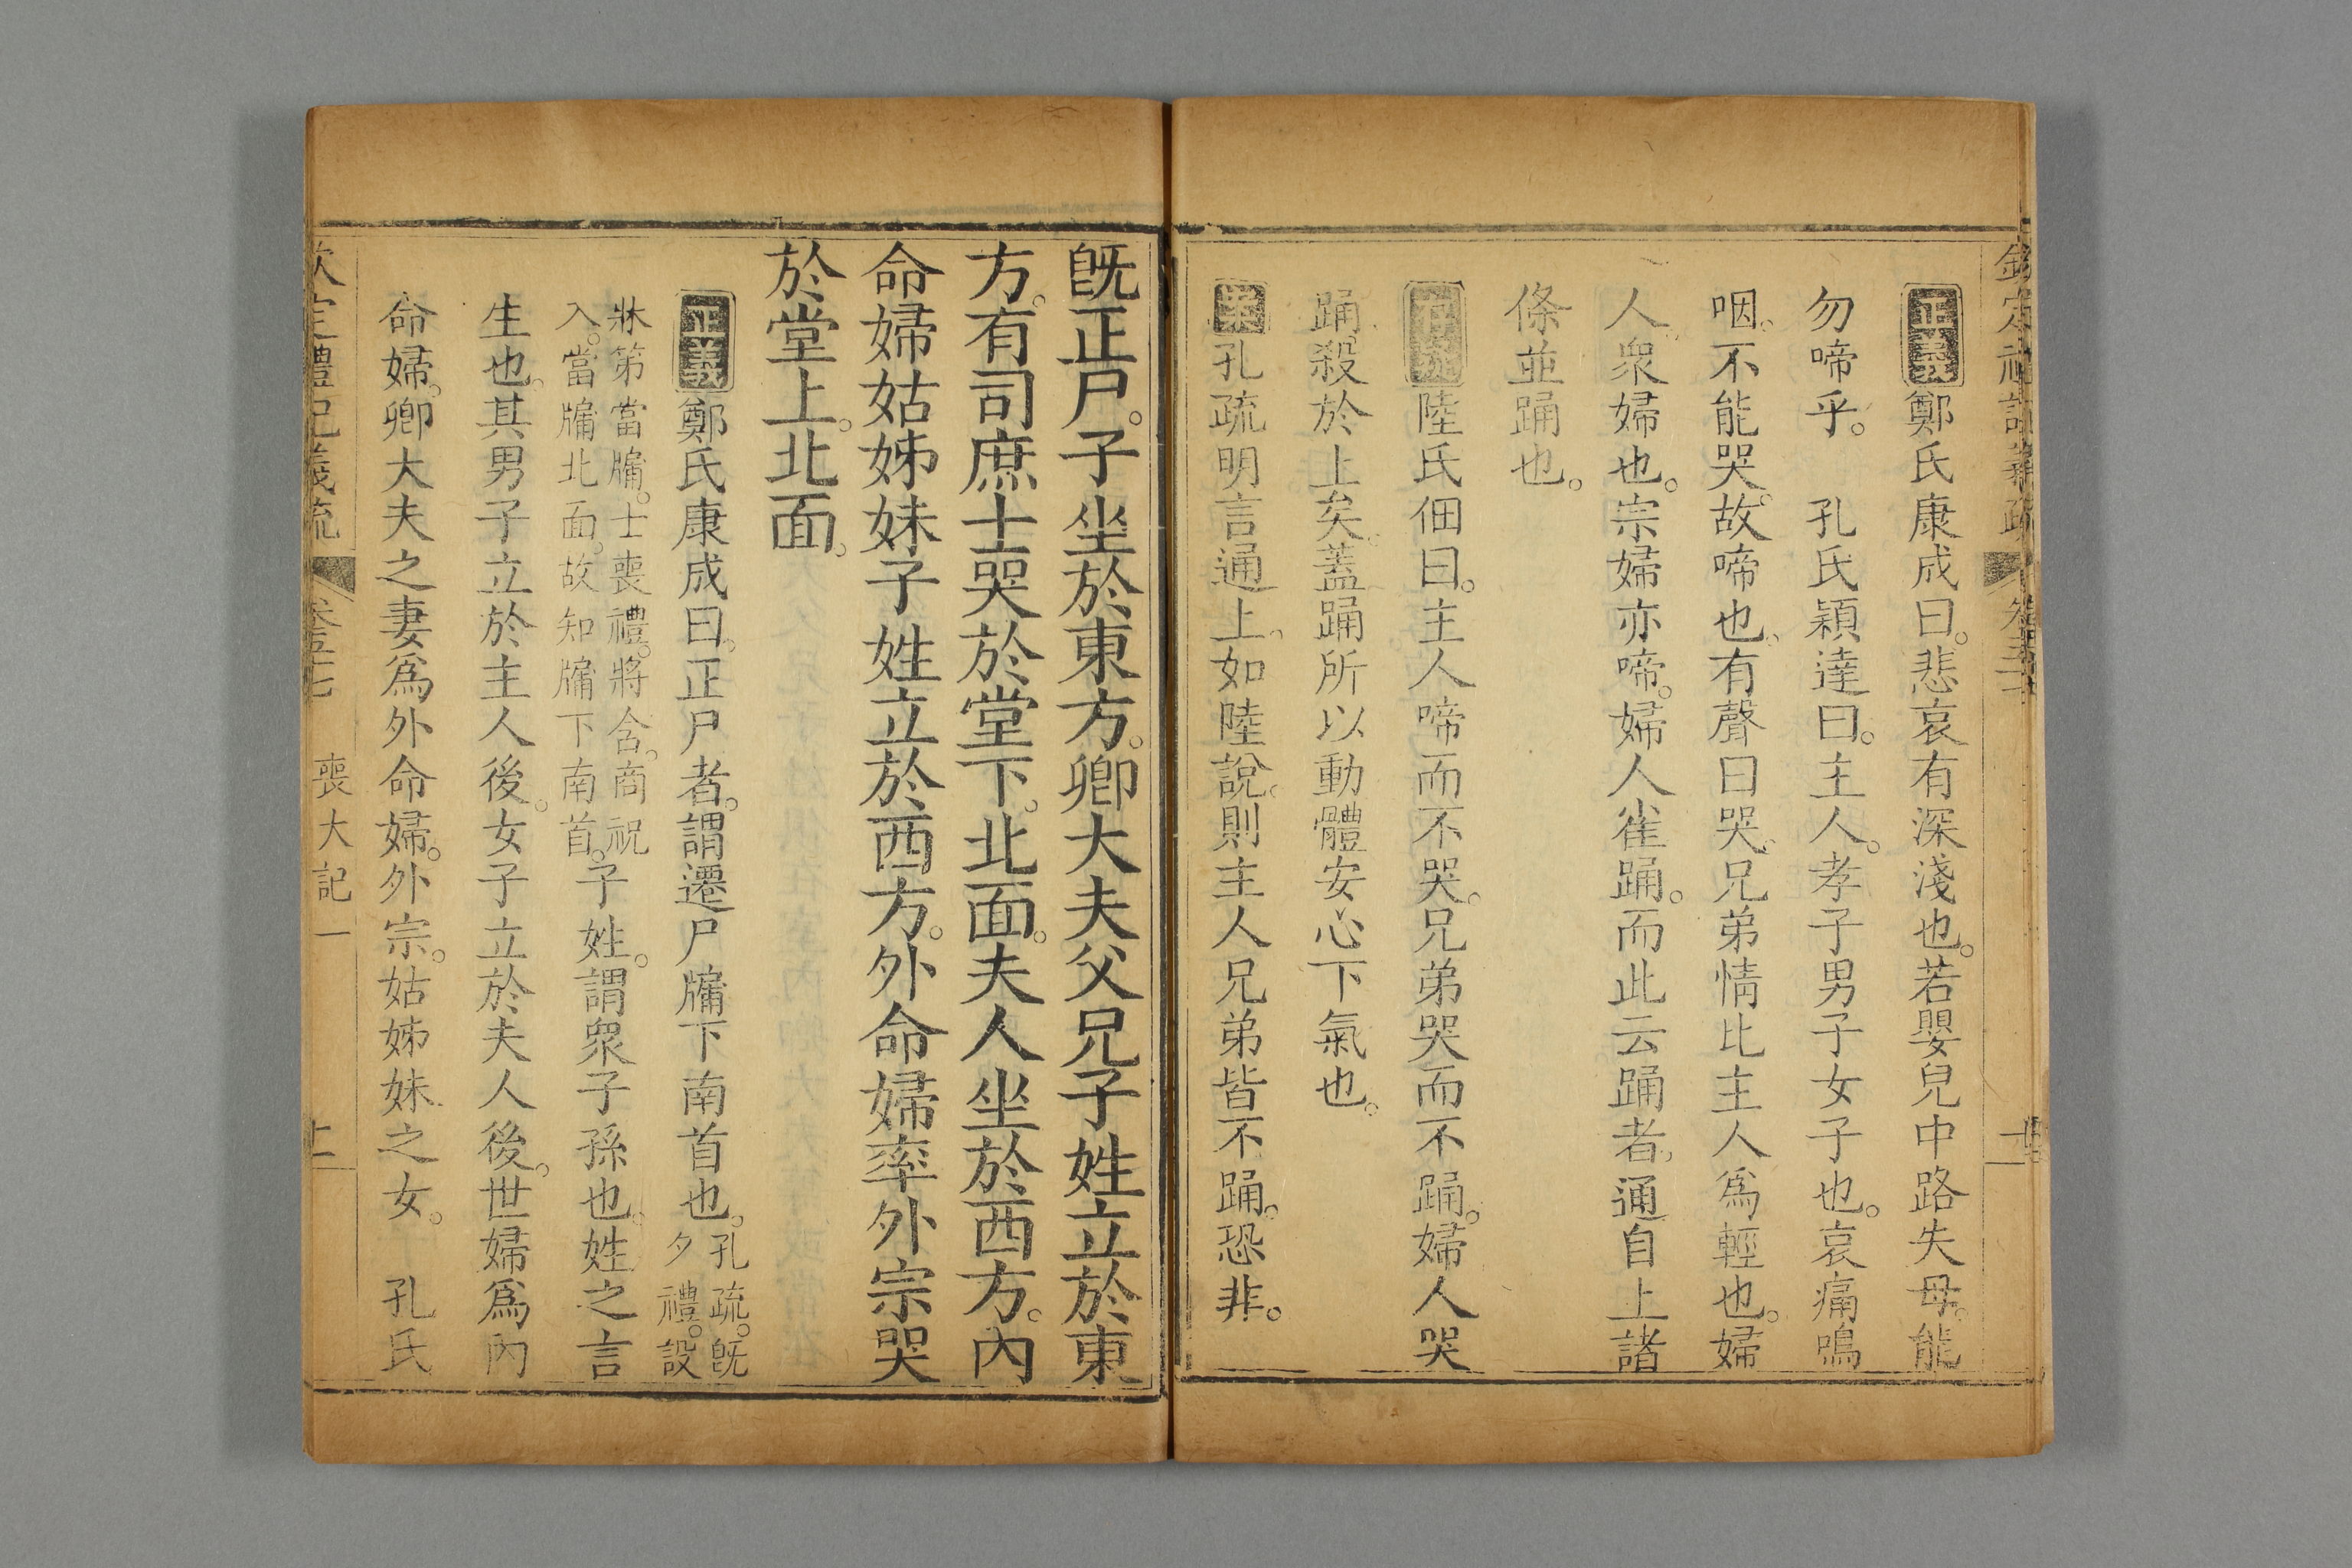 欽定禮記義疏 卷五十七
正義鄭氏康成曰。悲哀有深淺也。若嬰兒中路失母。能
勿啼乎。 孔氏穎達曰。主人。孝子男子女子也。哀痛嗚
咽。不能哭。故啼也。有聲曰哭。兄弟情比主人爲輕也。婦
人。衆婦也。宗婦亦啼。婦人雀踊。而此云踊者。通自上諸
條並踊也。
陸氏佃曰。主人啼而不哭。兄弟哭而不踊。婦人哭
踊。殺於上矣。蓋踊所以動體安心下氣也。
案孔疏明言通上。如陸說。則主人兄弟皆不踊。恐非。
旣正尸。子坐於東方。卿大夫父兄子姓立於東
方。有司庶士哭於堂下。北面。夫人坐於西方。內
命婦姑姊妹子姓立於西方。外命婦率外宗哭
於堂上。北面。
正義鄭氏康成曰。正尸者。謂遷尸牖下南首也。孔疏。旣
夕禮。設
牀第當牖。士喪禮。將含。商祝
入。當牖北面。故知牖下南首。子姓。謂衆子孫也。姓之言
生也。其男子立於主人後。女子立於夫人後。世婦爲內
命婦。卿大夫之妻爲外命婦。外宗。姑姊妹之女。 孔氏
欽定禮記義疏 卷五十七 喪大記一 上